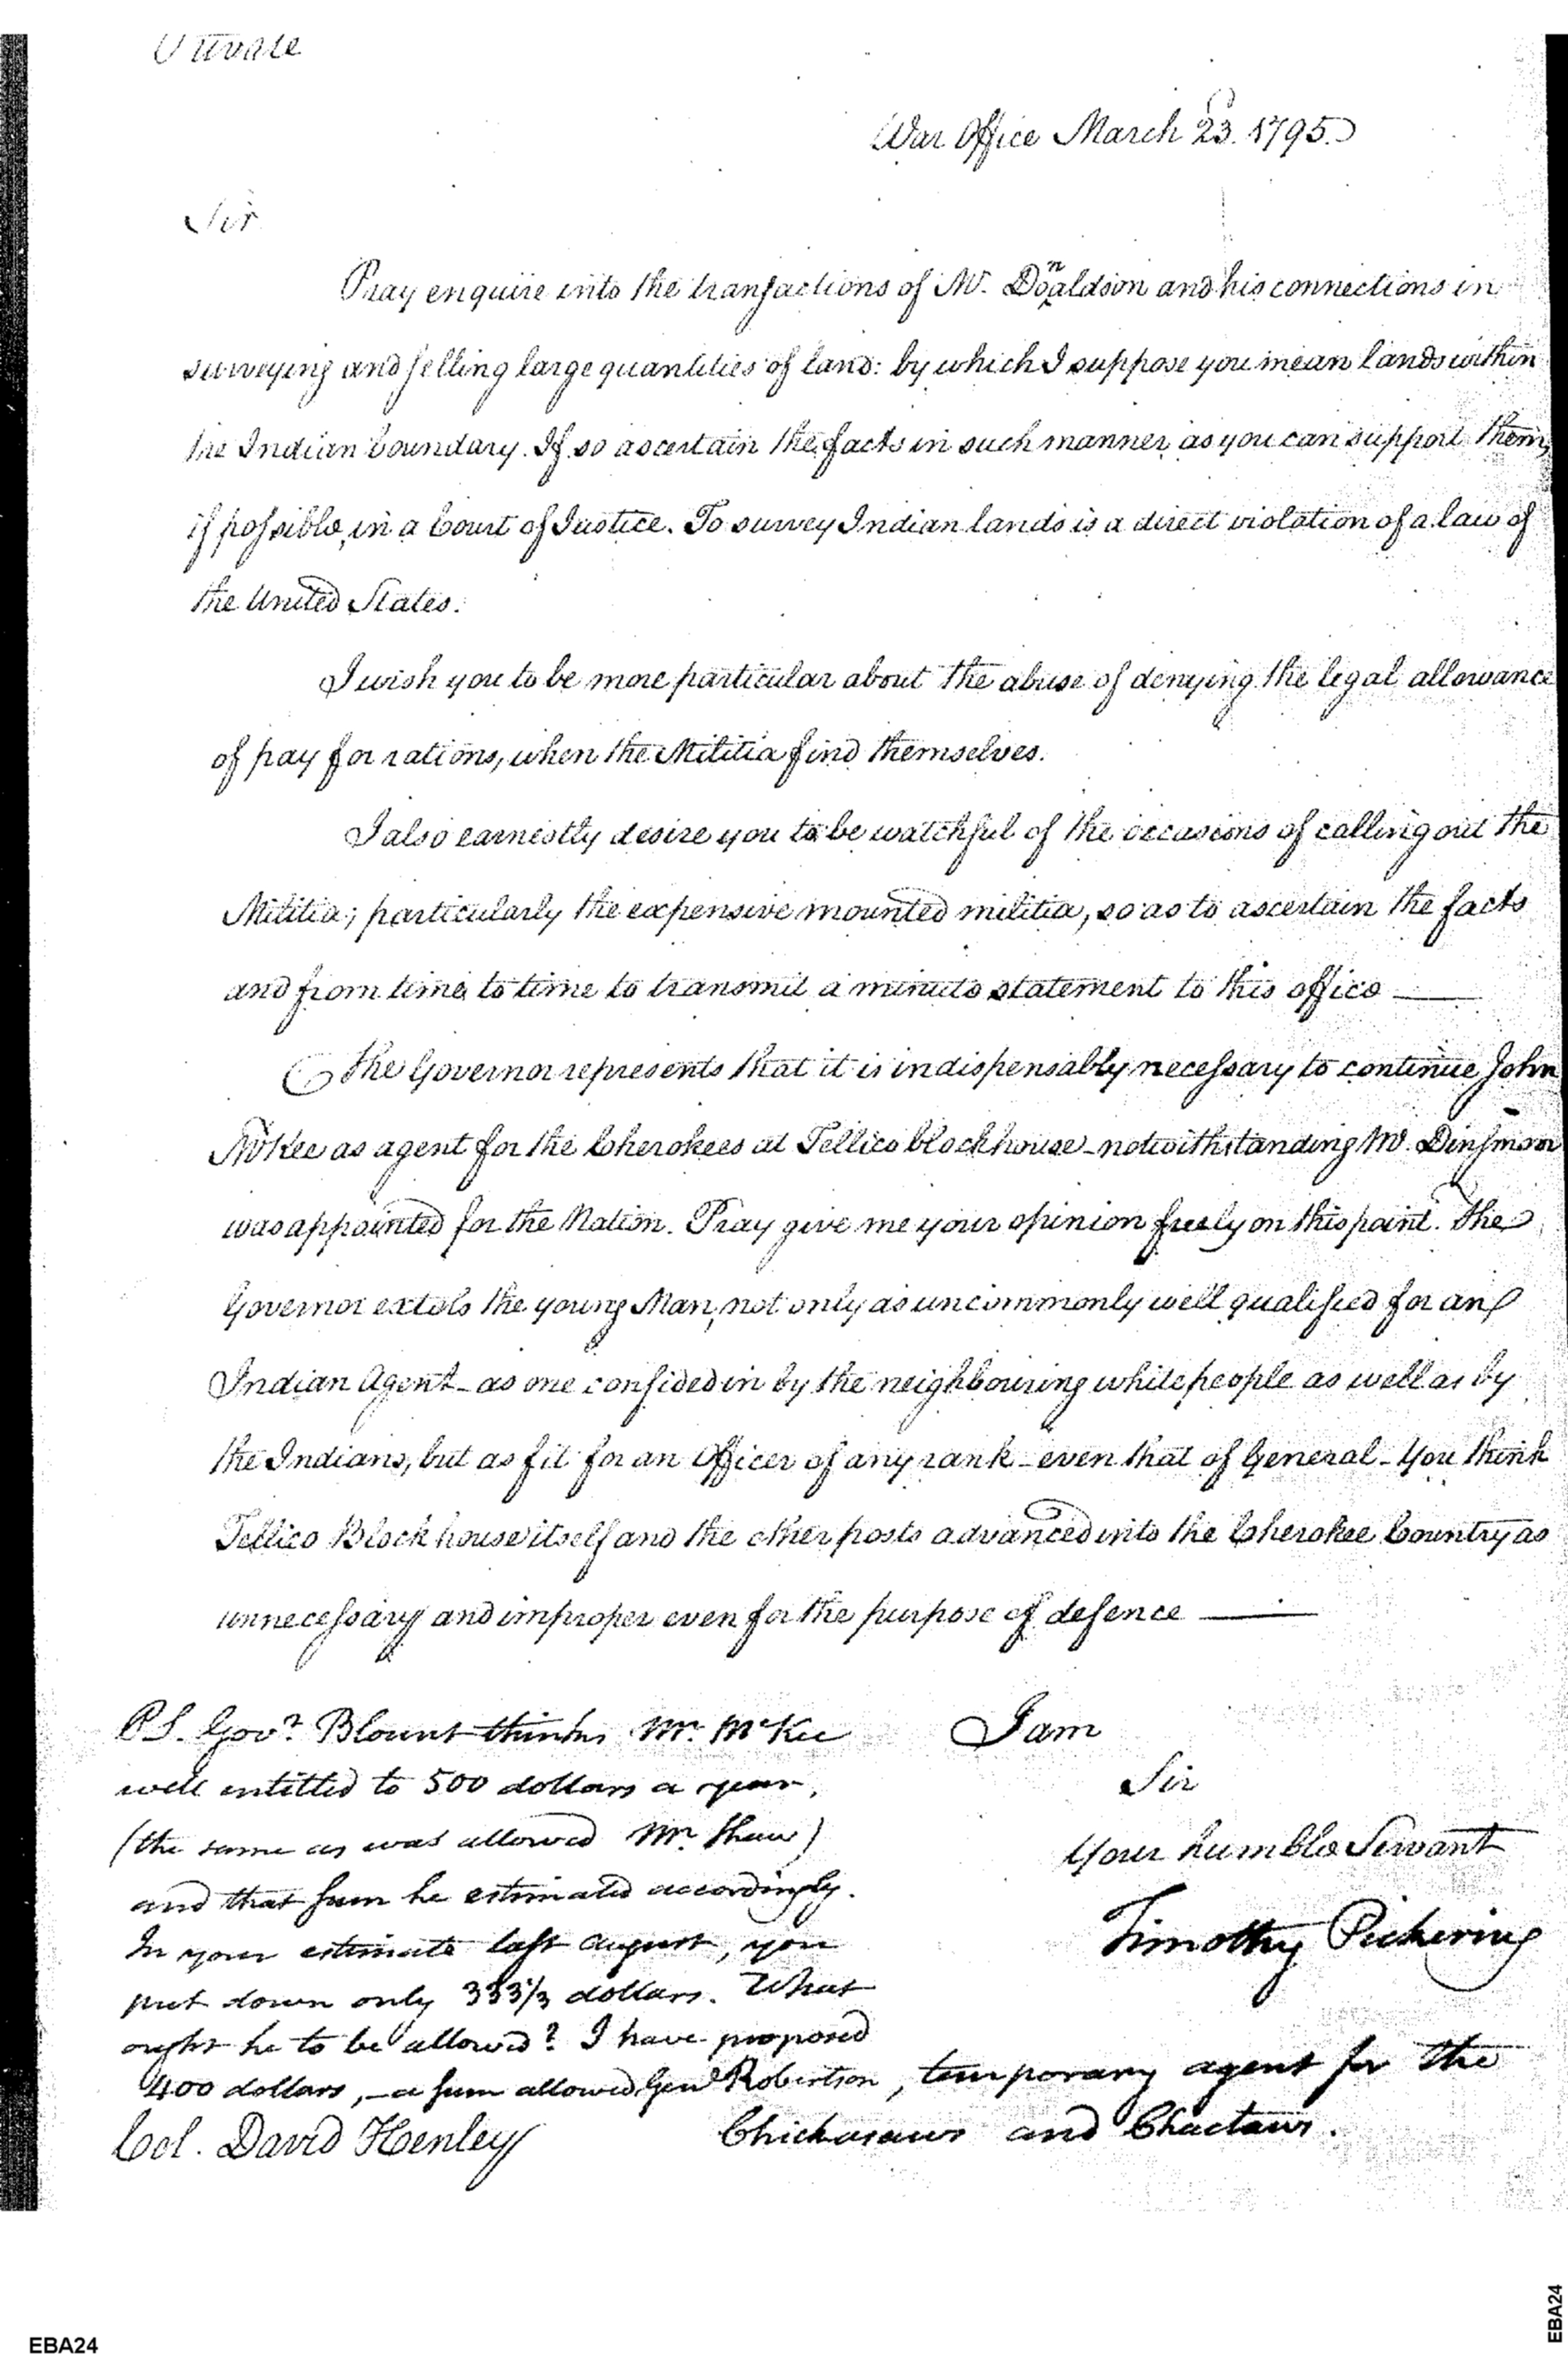 Private
War Office March 23. 1795.
Sir
Pray enquire into the transactions of Mr. Donaldson and his connections in
surveying and selling large quantities of land: by which I suppose you mean lands within
the Indian boundary. If so ascertain the facts in such manner as you can support them,
if possible, in a Court of Justice. To survey Indian lands is a direct violation of a law of
the United States.
I wish you to be more particular about the abuse of denying the legal allowance
of pay for rations, when the Militia find themselves.
I also earnestly desire you to be watchful of the occasions of calling out the
Militia; particularly the expensive mounted militia, so as to ascertain the facts
and from time to time to transmit a minute statement to this office —
The Governor represents that it is indispensably necessary to continue John
McKee as agent for the Cherokees at Tellico blockhouse - notwithstanding Mr. Dinsmoor
was appointed for the Nation. Pray give me your opinion freely on this point. The
Governor extols the young Man, not only as uncommonly well qualified for an
Indian Agent - as one confided in by the neighbouring white people as well as by
the Indians, but as fit for an Officer of any rank - even that of General - You think
Tellico Block house itself and the other posts advanced into the Cherokee Country as
unnecessary and improper even for the purpose of defence —
P.S. Govr. Blount thinks Mr. McKee
well entitled to 500 dollars a year,
(the same as was allowed Mr. Shaw)
and that sum he estimated accordingly.
In your estimate last august, you
put down only 333⅓ dollars. What
ought he to be allowed? I have proposed
400 dollars, - a sum allowed Genl Robertson, temporary agent for the
Chickasaws and Chactaws.
I am
Sir
Your humble Servant
Timothy Pickering
Col. David Henley
EBA24
EBA24